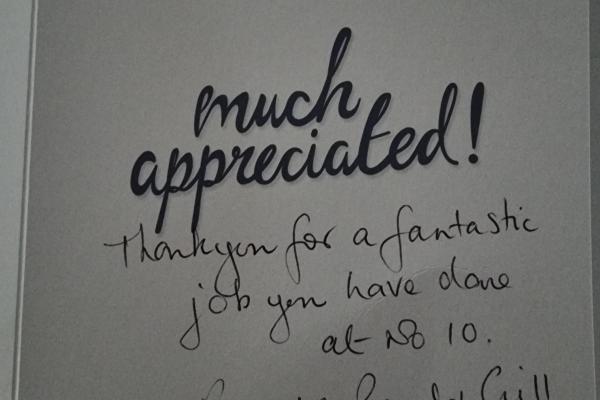 much
appreciated!
Thankyou for a fantastic
job you have done
at No 10.
Gill